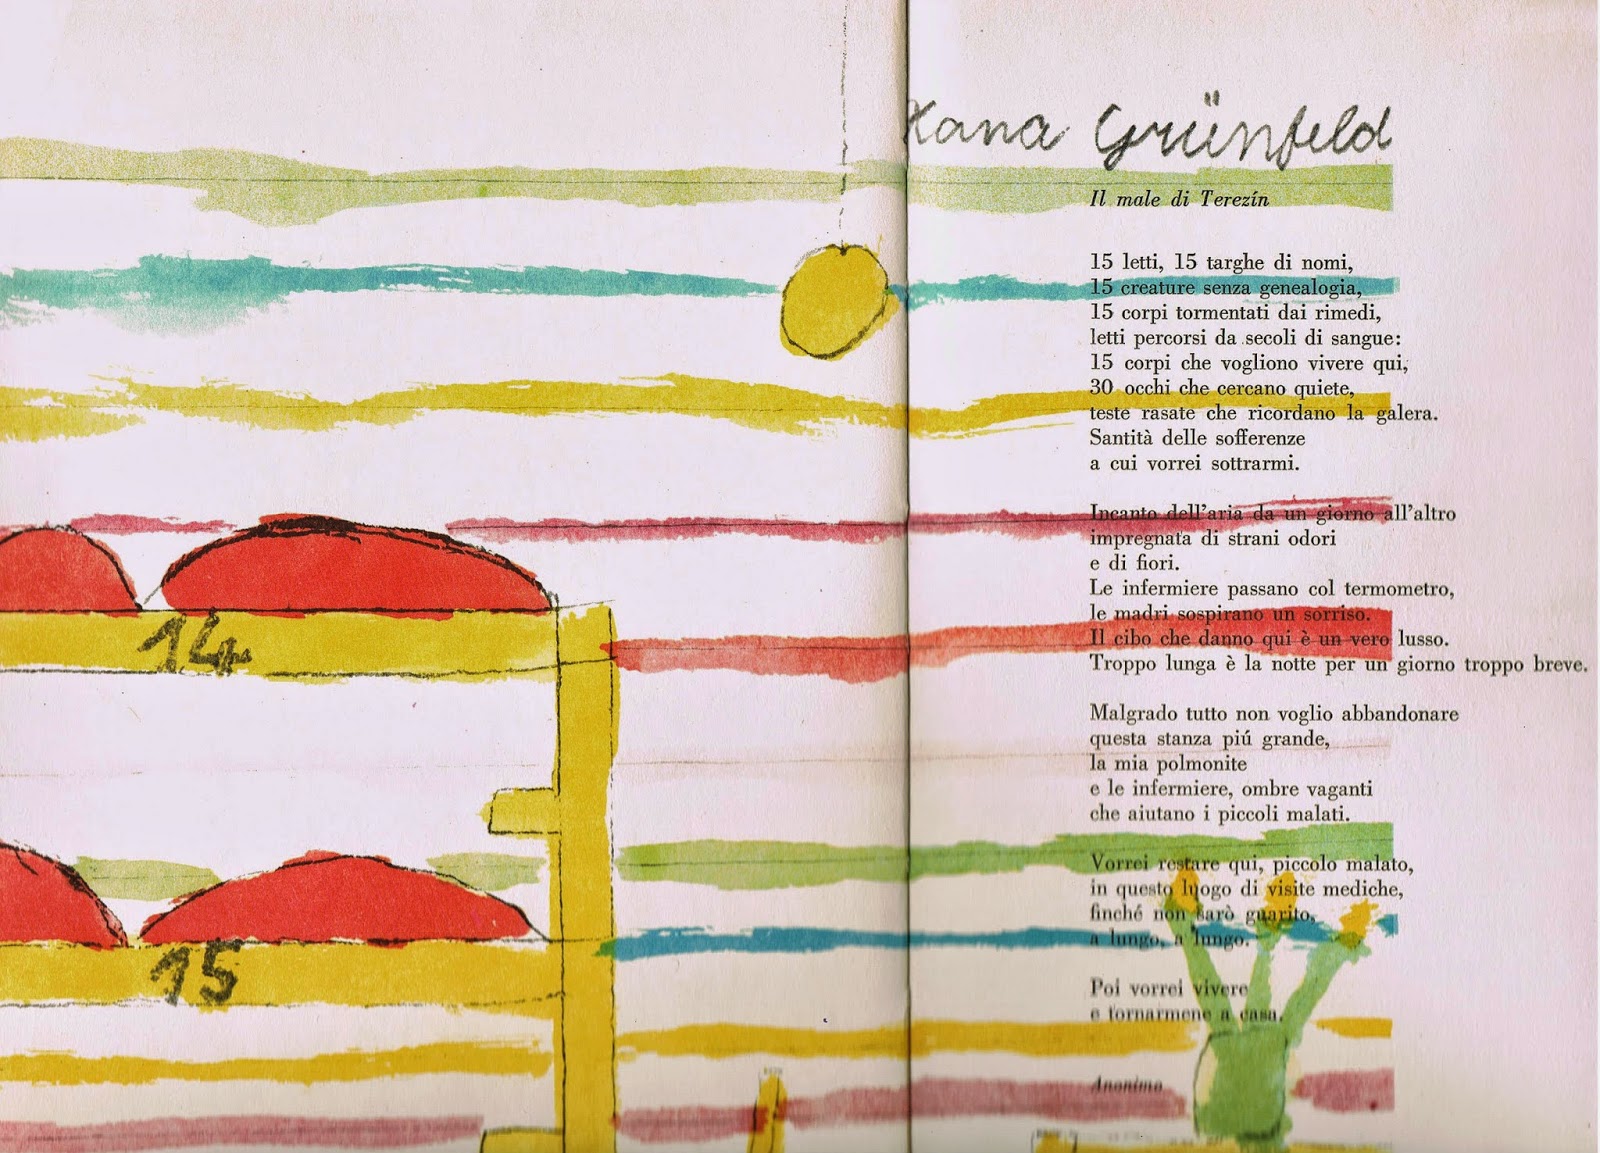 Hana Grünfeld
Il male di Terezín
15 letti, 15 targhe di nomi,
15 creature senza genealogia,
15 corpi tormentati dai rimedi,
letti percorsi da secoli di sangue:
15 corpi che vogliono vivere qui,
30 occhi che cercano quiete,
teste rasate che ricordano la galera.
Santità delle sofferenze
a cui vorrei sottrarmi.
Incanto dell'aria da un giorno all'altro
impregnata di strani odori
e di fiori.
Le infermiere passano col termometro,
le madri sospirano un sorriso.
Il cibo che danno qui è un vero lusso.
Troppo lunga è la notte per un giorno troppo breve.
Malgrado tutto non voglio abbandonare
questa stanza piú grande,
la mia polmonite
e le infermiere, ombre vaganti
che aiutano i piccoli malati.
Vorrei restare qui, piccolo malato,
in questo luogo di visite mediche,
finché non sarò guarito,
a lungo, a lungo.
Poi vorrei vivere
e tornarmene a casa.
Anonimo
14
15